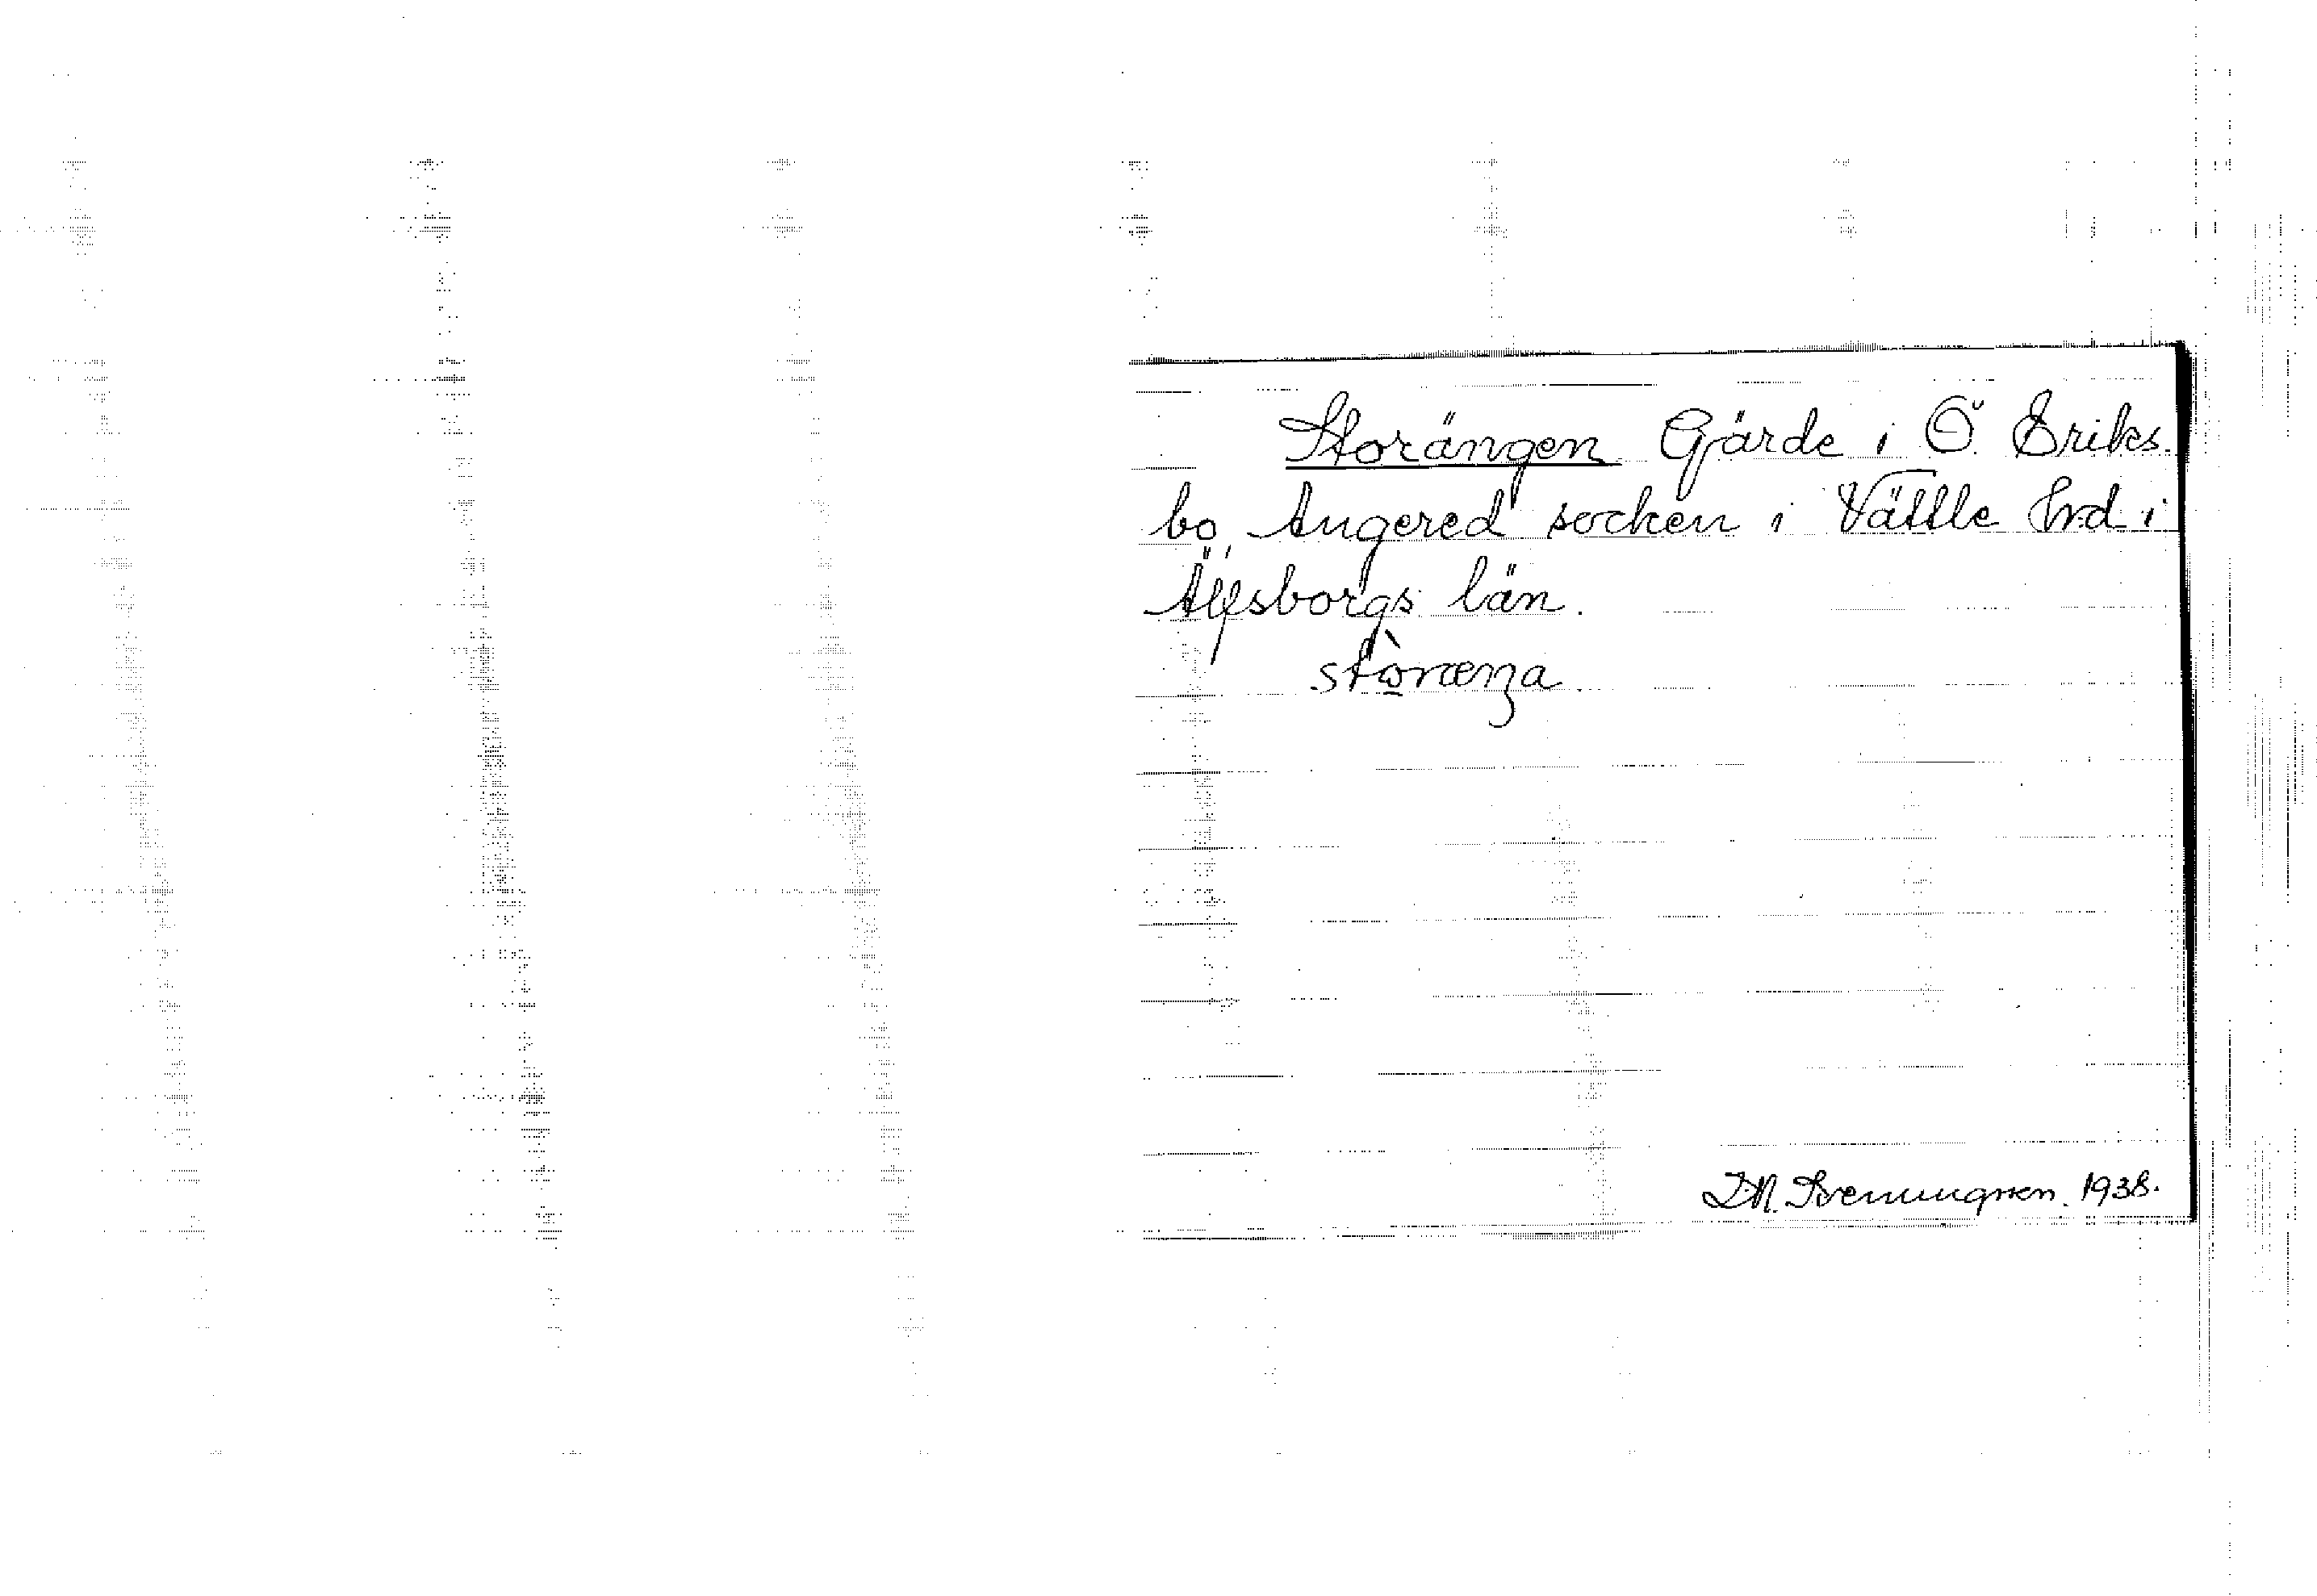 Storängen Gärde i Ö. Eriks
bo, Angered socken i Vättle hrd i
Älfsborgs län.
stòræŋa
I. M. Svenungsson. 1938.